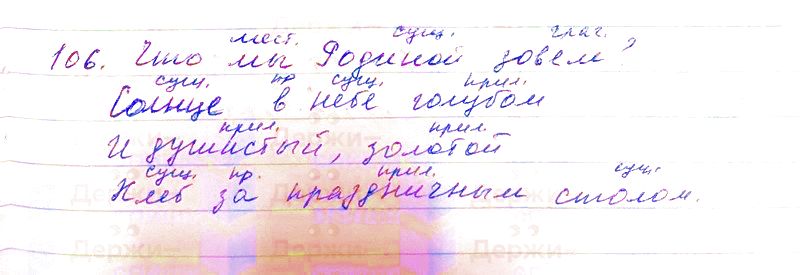 мест. сущ. глаг.
106. Что мы Родиной зовем?
сущ. пр сущ. прил.
Солнце в небе голубом
прил. прил.
И душистый, золотой
сущ. пр. прил. сущ.
Хлеб за праздничным столом.
Держи- Держи- Держи-
Держи- Держи- Держи-